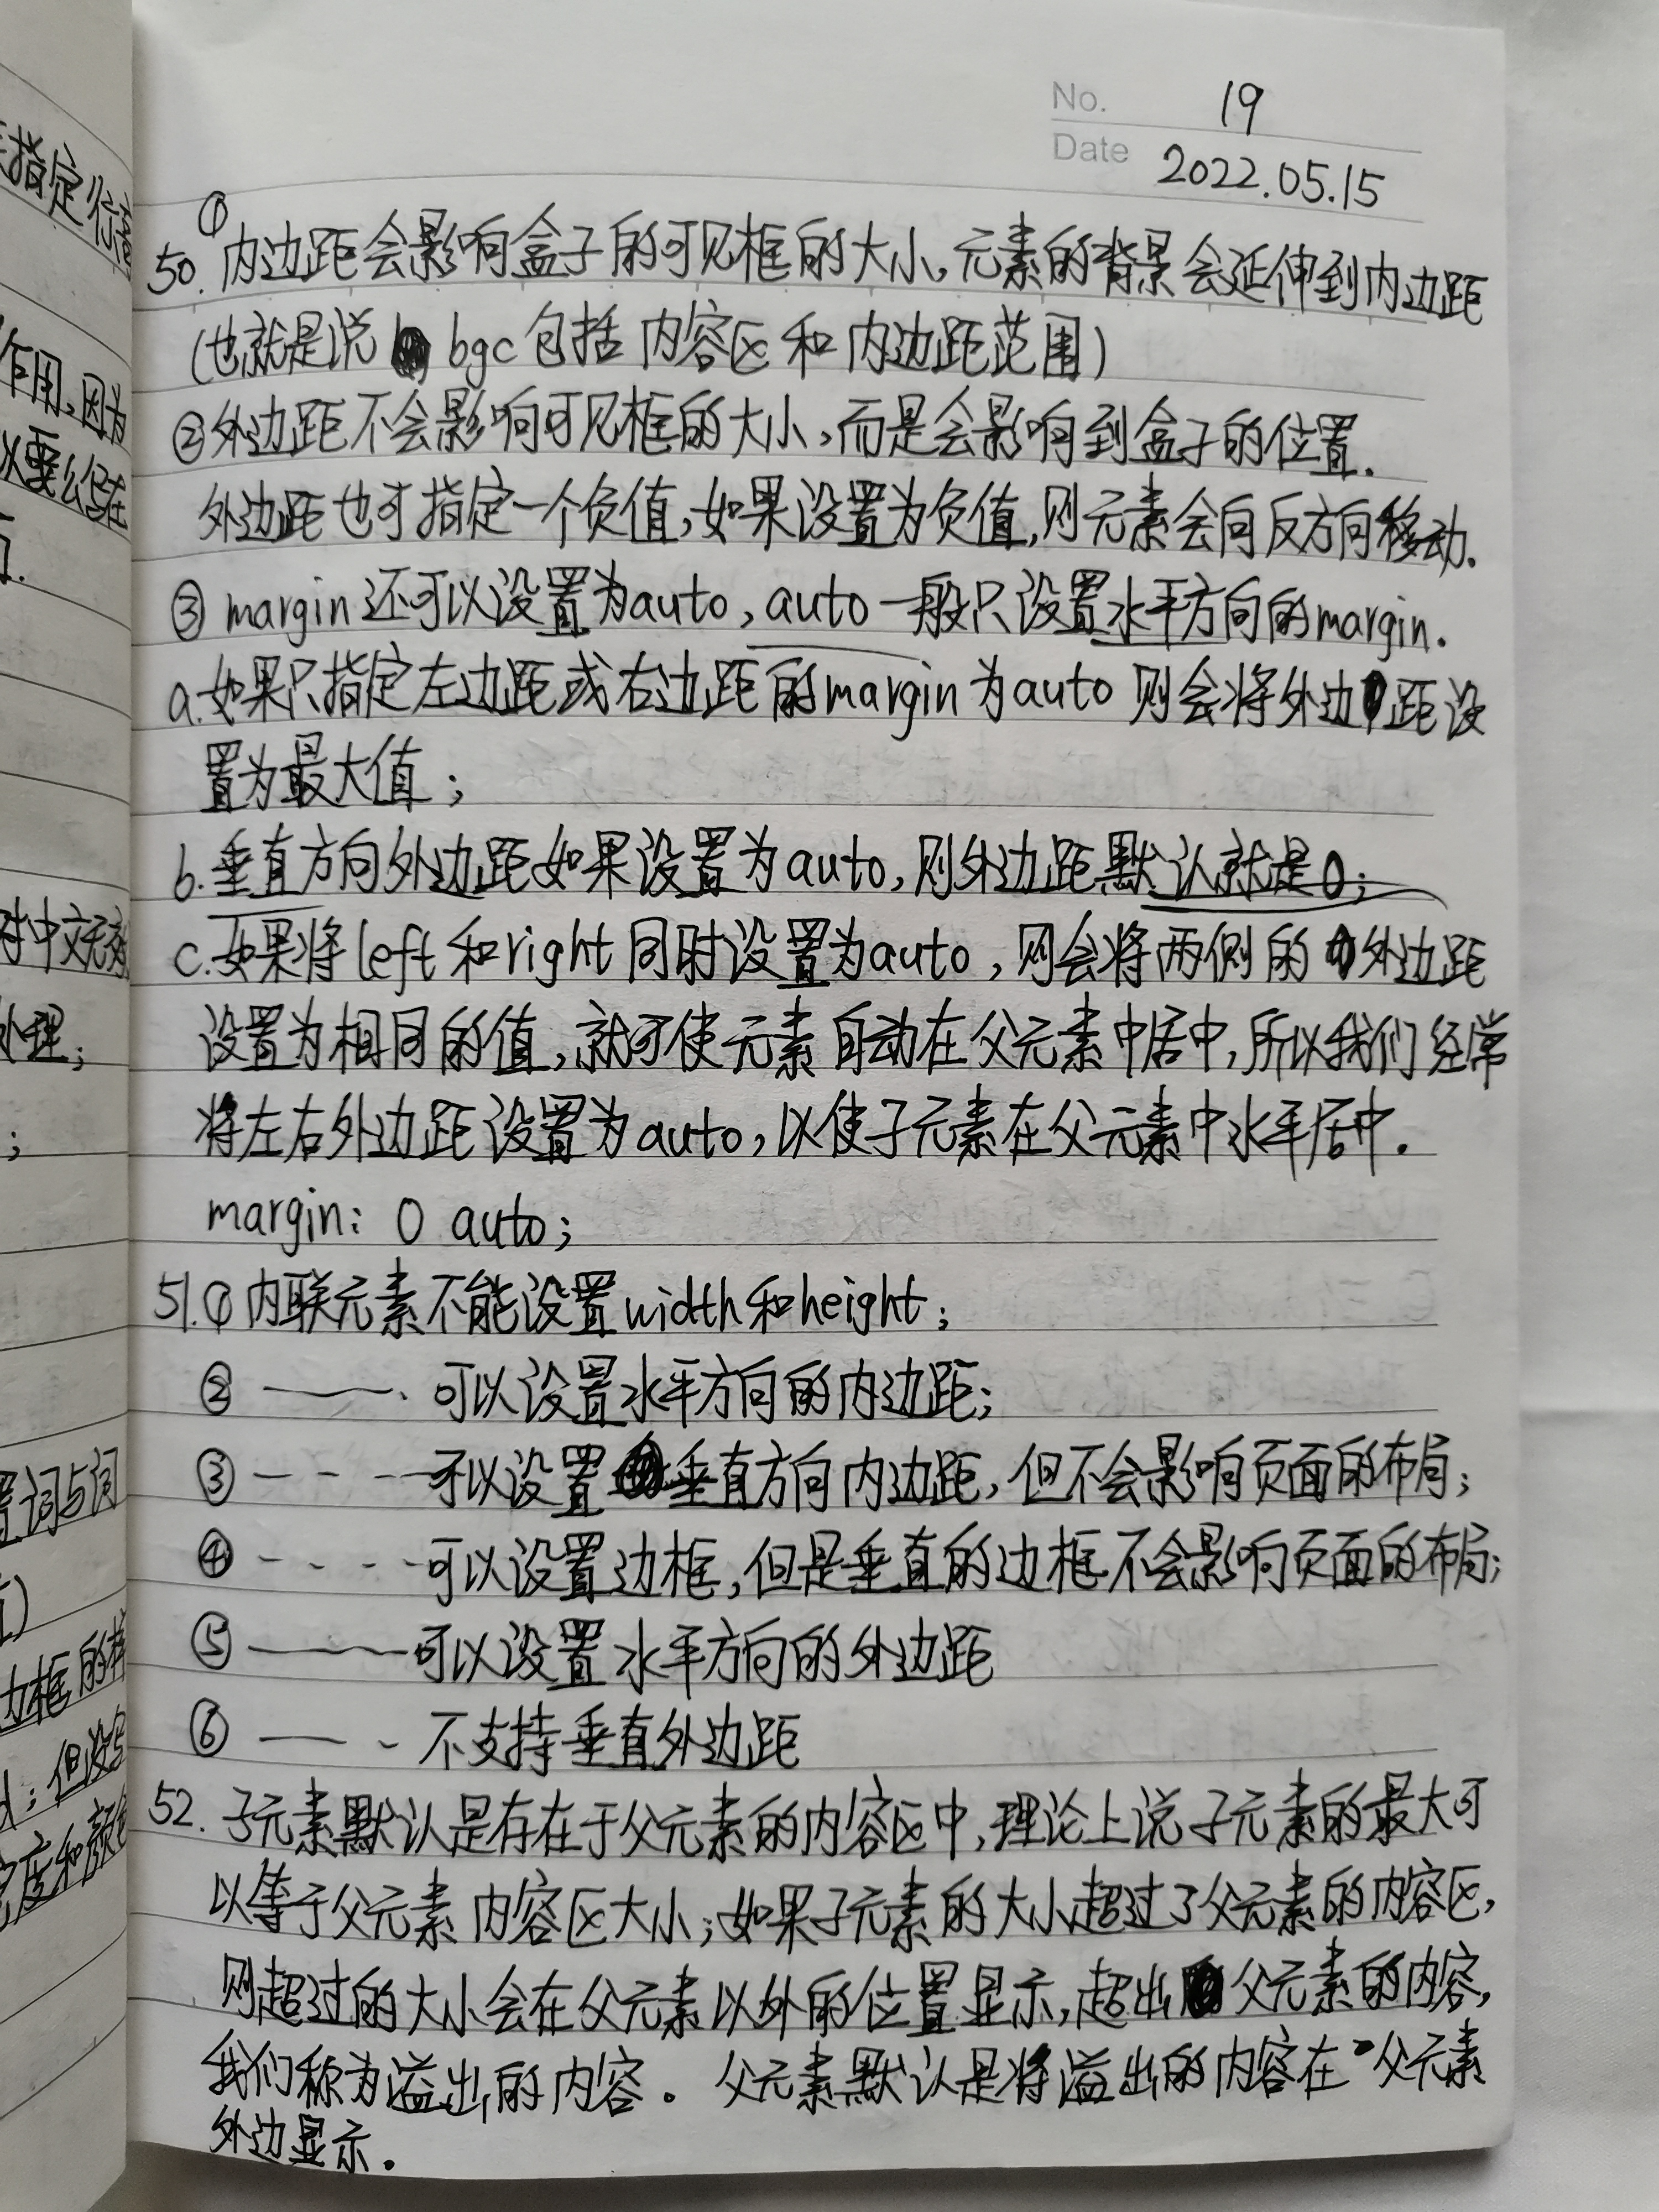 No. 19
Date 2022.05.15
50. ①内边距会影响盒子的可见框的大小,元素的背景会延伸到内边距
(也就是说 bgc包括内容区和内边距范围)
②外边距不会影响可见框的大小,而是会影响到盒子的位置.
外边距也可指定一个负值,如果设置为负值,则元素会向反方向移动.
③ margin还可以设置为auto, auto一般只设置水平方向的margin.
a.如果只指定左边距或右边距的margin为auto则会将外边距设
置为最大值;
b.垂直方向外边距如果设置为auto,则外边距默认就是0;
c.如果将left和right同时设置为auto,则会将两侧的外边距
设置为相同的值,就可使元素自动在父元素中居中,所以我们经常
将左右外边距设置为auto,以使子元素在父元素中水平居中.
margin: 0 auto;
51.①内联元素不能设置width和height;
② ——— 可以设置水平方向的内边距;
③ – – – 可以设置垂直方向内边距,但不会影响页面的布局;
④ - - - - 可以设置边框,但是垂直的边框不会影响页面的布局;
⑤ ——— 可以设置水平方向的外边距
⑥ —— - 不支持垂直外边距
52. 子元素默认是存在于父元素的内容区中,理论上说子元素的最大可
以等于父元素内容区大小;如果子元素的大小超过了父元素的内容区,
则超过的大小会在父元素以外的位置显示,超出父元素的内容,
我们称为溢出的内容。父元素默认是将溢出的内容在父元素
外边显示.
指定行高
作用,因为
以要么写在
对中文无效
处理;
;
置词与词
边框的样
;但没写
宽度和颜色